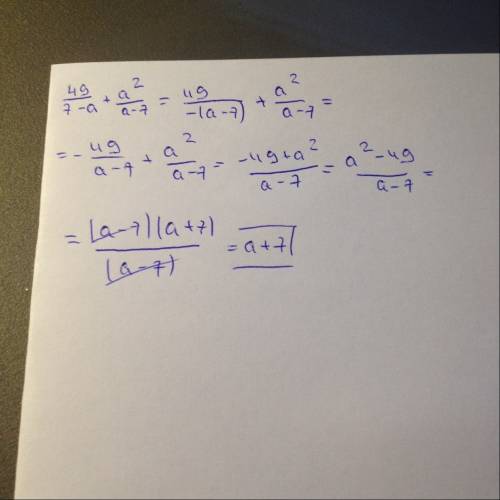 49/(7-a) + a²/(a-7) = 49/(-(a-7)) + a²/(a-7) =
= - 49/(a-7) + a²/(a-7) = (-49+a²)/(a-7) = (a²-49)/(a-7) =
= (a-7)(a+7)/(a-7) = a+7